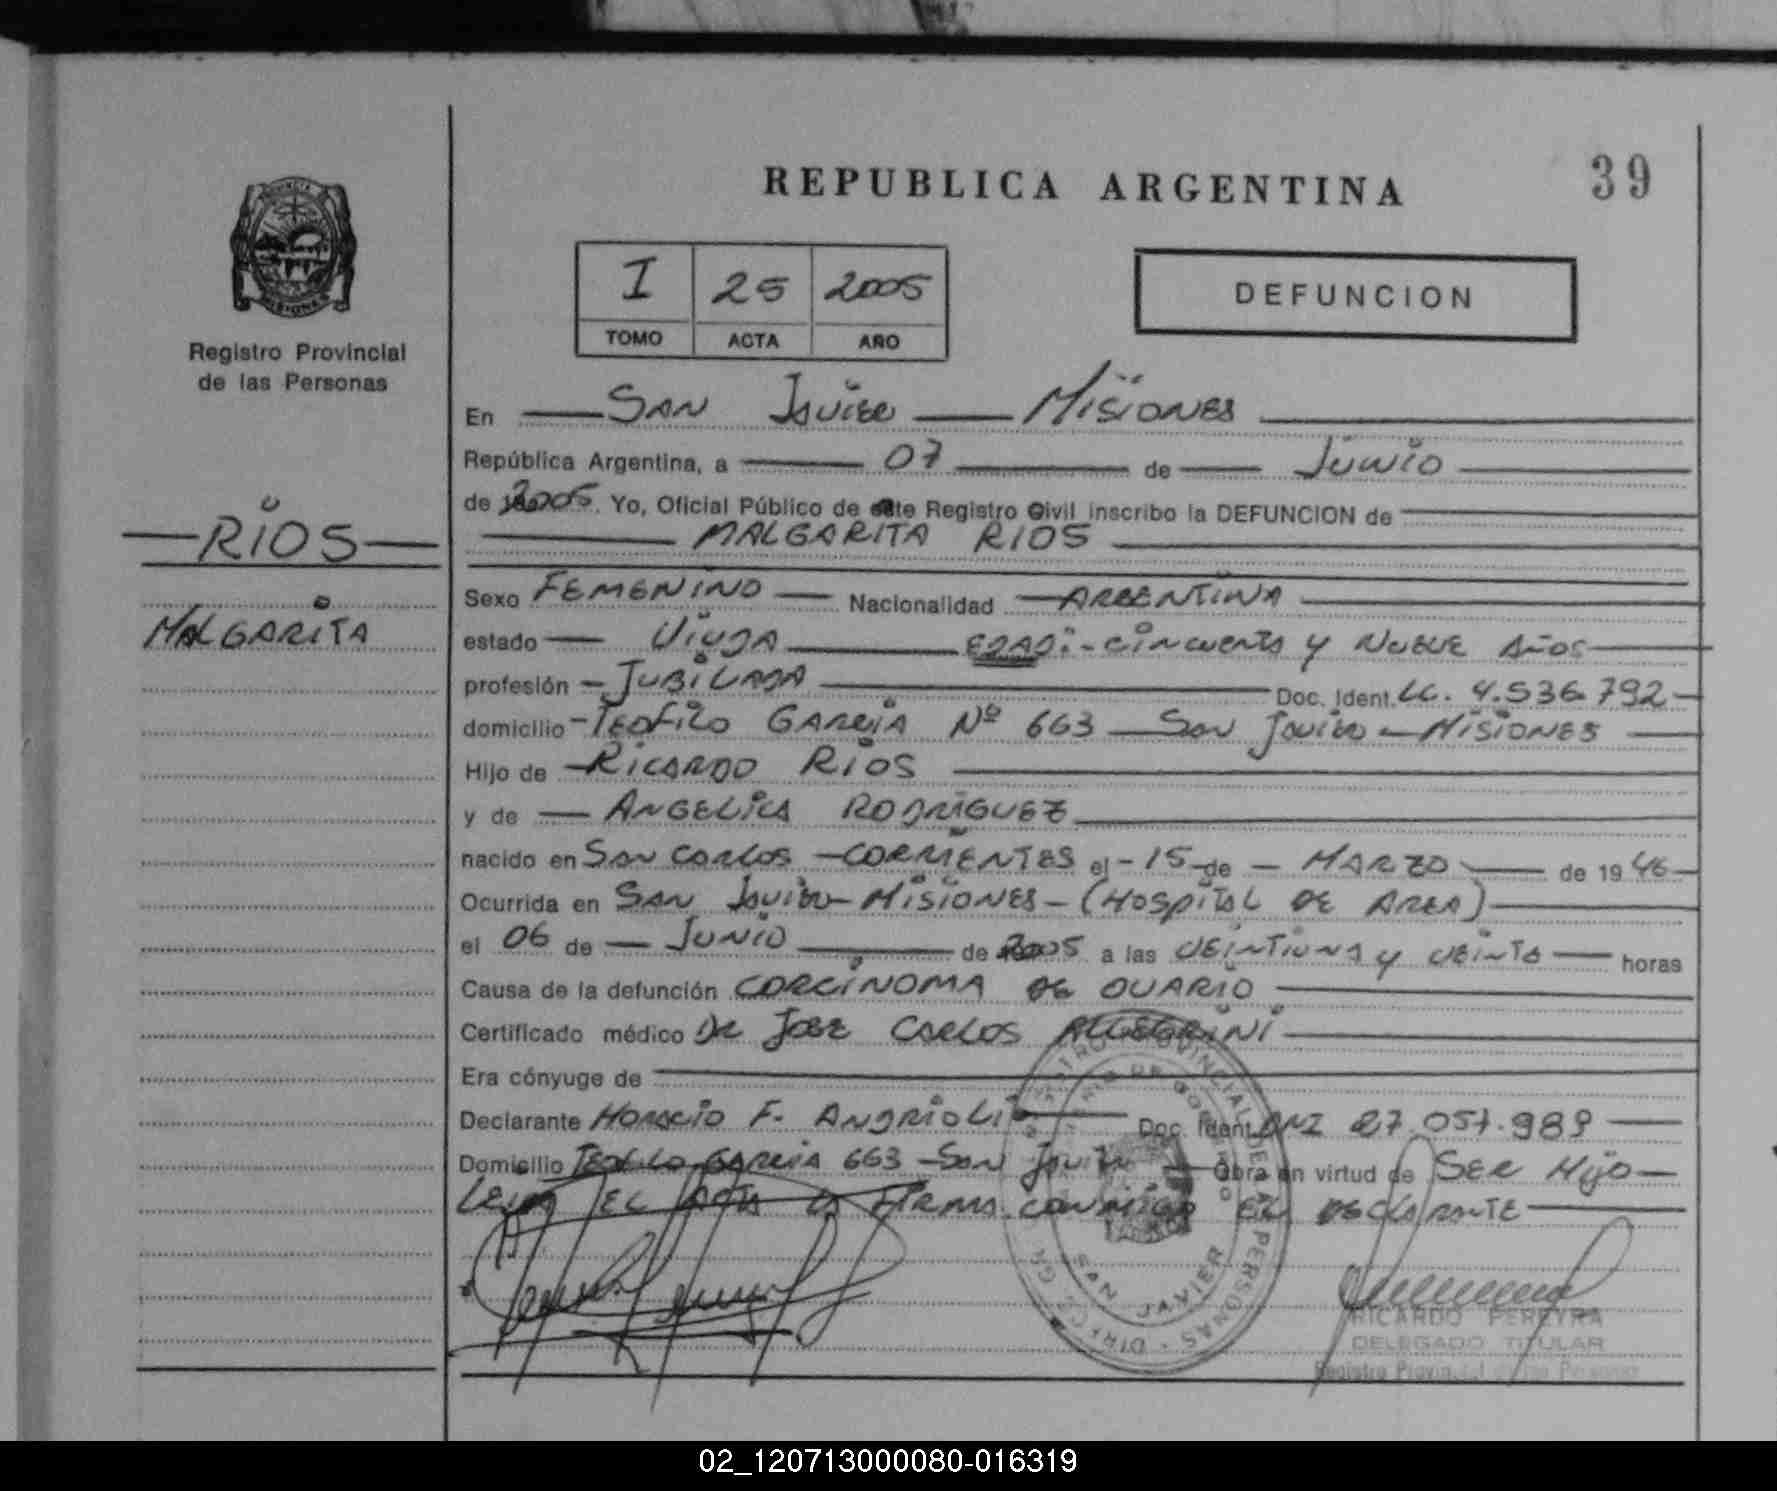 REPUBLICA ARGENTINA
39
I 25 2005
TOMO ACTA AÑO
DEFUNCION
Registro Provincial
de las Personas
RIOS
MALGARITA
En — SAN JAVIER — MISIONES —
República Argentina, a — 07 — de — JUNIO —
de 2005. Yo, Oficial Público de este Registro Civil inscribo la DEFUNCION de —
— MALGARITA RIOS —
Sexo FEMENINO — Nacionalidad — ARGENTINA —
estado — VIUDA — EDAD:- CINCUENTA Y NUEVE AÑOS —
profesión — JUBILADA — Doc. Ident. LC. 4.536.792 —
domicilio - TEOFILO GARCIA Nº 663 — SAN JAVIER — MISIONES —
Hijo de — RICARDO RIOS —
y de — ANGELICA RODRIGUEZ —
nacido en SAN CARLOS — CORRIENTES el - 15 - de — MARZO — de 19 46 —
Ocurrida en SAN JAVIER — MISIONES — (HOSPITAL DE AREA) —
el 06 de — JUNIO — de 2005 a las VEINTIUNA Y VEINTE — horas
Causa de la defunción CORCINOMA DE OVARIO —
Certificado médico DR JOSE CARLOS ALLEGRINI —
Era cónyuge de —
Declarante HORACIO F. ANDRIOLI — Doc. Ident. DNI 27.057.989 —
Domicilio TEOFILO GARCIA 663 — SAN JAVIER — Obra en virtud de SER HIJO —
LEIDA EL ACTA LA FIRMA CONMIGO EL DECLARANTE —
SAN JAVIER
RICARDO PEREYRA
DELEGADO TITULAR
02_120713000080-016319